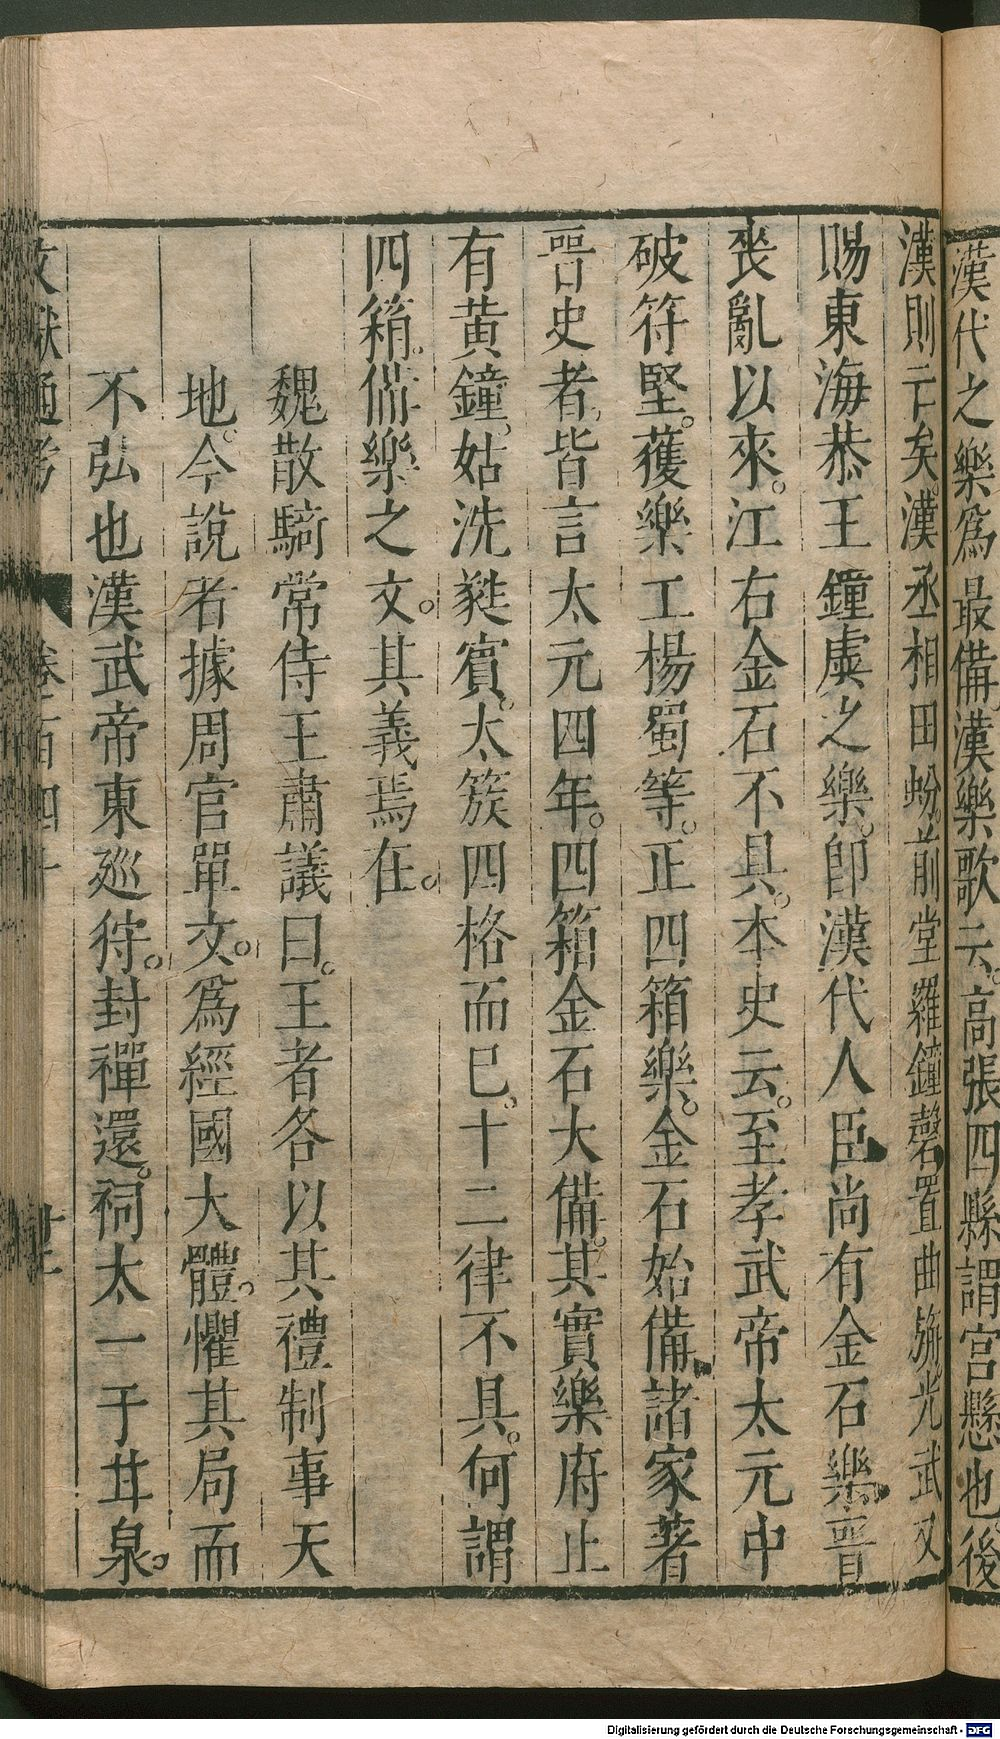 漢代之樂爲最備漢樂歌云。高張四縣謂宮懸也後
漢則亡矣。漢丞相田蚡。前堂羅鐘磬置曲旃。光武又
賜東海恭王鐘虡之樂。卽漢代人臣尚有金石樂晉
喪亂以來。江右金石不具。本史云。至孝武帝太元中
破符堅。獲樂工楊蜀等。正四箱樂。金石始備諸家著
晉史者。皆言太元四年。四箱金石大備。其實樂府止
有黄鐘。姑洗蕤賓。太簇四格而巳。十二律不具。何謂
四箱。備樂之文。其義焉在。
魏散騎常侍王肅議曰。王者各以其禮制事天
地。今說者據周官單文。爲經國大體。懼其局而
不弘也漢武帝東廵狩。封禪還。祠太一于甘泉。
文獻通考
卷一百四十
Digitalisierung gefördert durch die Deutsche Forschungsgemeinschaft - DFG